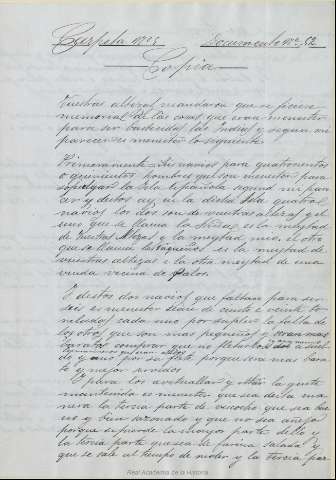 Carpeta nº 5 Documento nº 52
Copia
Vuestras altezas mandaron que se ficiese
memorial de las cosas que eran menester
para ser bastecidas las Indias y segun mi
parecer es menester lo seguiente
Primeramente seis navios para quatrocientos
o quynientos hombres que son menester para
la isla Española segund mi pare
cer y destos ay, en la dicha Isla quatro
navios los dos son de vuestras altezas y el
uno que se llama la es la meytad
de Vuestras Altezas y la meytad mio. el otro
que se llama la es la meytad de
vuestras altezas e la otra meytad de una
viuda vecina de Palos.
E destos dos navios que faltan para ser
seis es menester sean de ciento e veinte to
neladas cada uno por suplir la falta de
los otros que son mas pequeños y seran mas
baratos comprar que no fletarlos a sueldo
y no por su flete porque sera mas bara
to y mejor servidos
E para los avituallar y estar la gente
mantenida es menester que sea desta ma
nera la tercia parte de viscocho que sea bue
no y bien sazonado y que no sea añejo
porque se pierde la mayor parte dello y
la tercia parte que sea de farina salada y
que se sale al tiempo de moler y la tercia par
Real Academia de la Historia